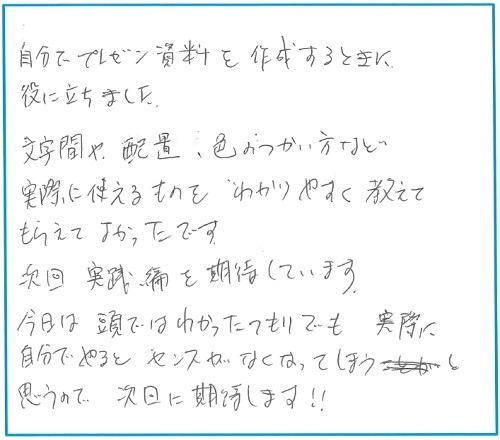 自分でプレゼン資料を作成するときに、
役に立ちました。
文字間や、配置、色のつかい方など
実際に使えるものを わかりやすく教えて
もらえて よかったです。
次回 実践編を期待しています。
今日は 頭ではわかったつもりでも 実際に
自分でやると センスがなくなってしまうと
思うので 次回に期待します!!